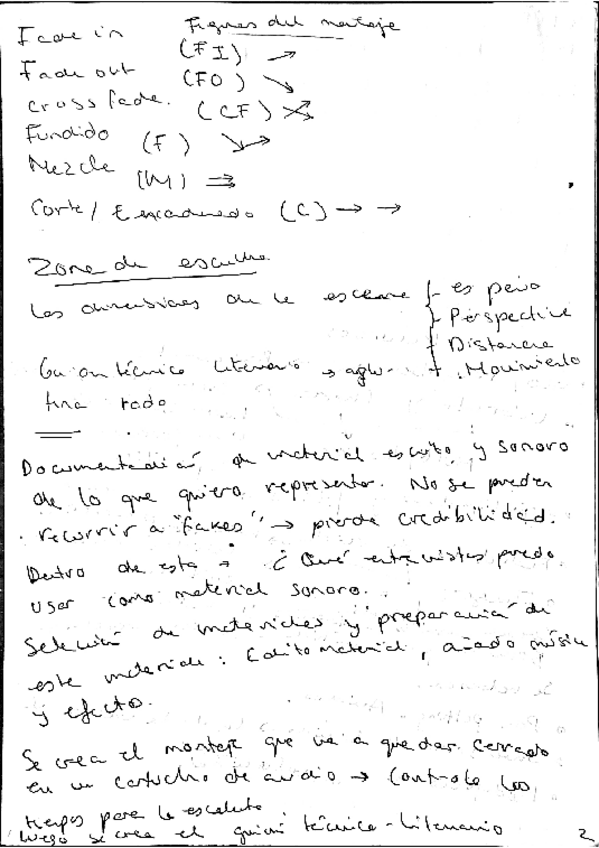 Figuras del montaje
Fade in (FI) →
Fade out (FO) ↘
Cross fade. (CF)
Fundido (F)
Mezcla (M) ⇉
Corte/ Encadenado (C) → →
Zona de escucha
Las dimensiones de la escena { - espacio
- Perspectiva
- Distancia
Guion técnico literario → aglu- + . Movimiento
tina todo
Documentación de material escrito y sonoro
de lo que quiero representar. No se pueden
recurrir a "fakes" → pierde credibilidad.
Dentro de esta → ¿Qué entrevistas puedo
usar como material sonoro.
Selección de materiales y preparación de
este material: Edito material, añado música
y efecto.
Se crea el montaje que va a quedar cerrado
en un cartucho de audio → Controlo los
tiempos para la escaleta
luego se crea el guión técnico-literario
2